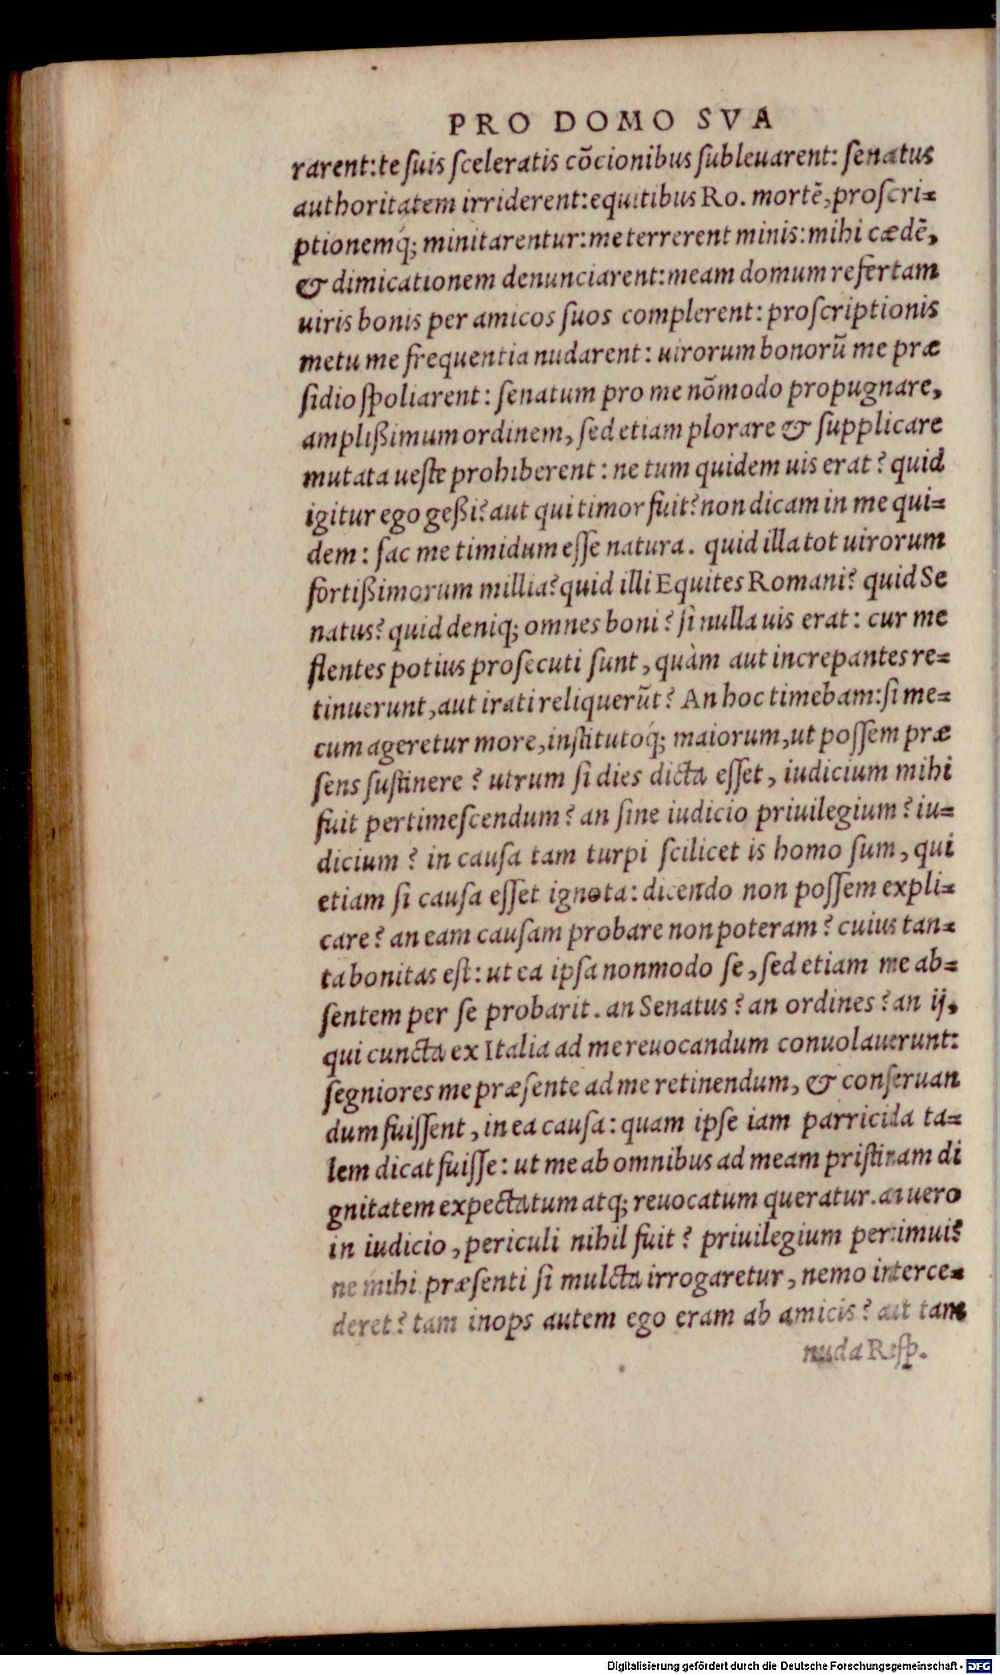 PRO DOMO SVA
rarent: te ſuis ſceleratis cōcionibus ſubleuarent: ſenatus
authoritatem irriderent: equitibus Ro. mortē, proſcri⸗
ptionemq́; minitarentur: me terrerent minis: mihi cædē,
& dimicationem denunciarent: meam domum refertam
uiris bonis per amicos ſuos complerent: proſcriptionis
metu me frequentia nudarent: uirorum bonorū me præ
ſidio ſpoliarent: ſenatum pro me nōmodo propugnare,
ampliſſimum ordinem, ſed etiam plorare & ſupplicare
mutata ueſte prohiberent: ne tum quidem uis erat? quid
igitur ego geſſi? aut qui timor fuit? non dicam in me qui⸗
dem: fac me timidum eſſe natura. quid illa tot uirorum
fortiſſimorum millia? quid illi Equites Romani? quid Se
natus? quid deniq; omnes boni? ſi nulla uis erat: cur me
flentes potius proſecuti ſunt, quàm aut increpantes re⸗
tinuerunt, aut irati reliquerūt? An hoc timebam: ſi me⸗
cum ageretur more, inſtitutoq́; maiorum, ut poſſem præ
ſens ſuſtinere? utrum ſi dies dicta eſſet, iudicium mihi
fuit pertimeſcendum? an ſine iudicio priuilegium? iu⸗
dicium? in cauſa tam turpi ſcilicet is homo ſum, qui
etiam ſi cauſa eſſet ignota: dicendo non poſſem expli⸗
care? an eam cauſam probare non poteram? cuius tan⸗
ta bonitas eſt: ut ea ipſa nonmodo ſe, ſed etiam me ab⸗
ſentem per ſe probarit. an Senatus? an ordines? an ij,
qui cuncta ex Italia ad me reuocandum conuolauerunt:
ſegniores me præſente ad me retinendum, & conſeruan
dum fuiſſent, in ea cauſa: quam ipſe iam parricida ta⸗
lem dicat fuiſſe: ut me ab omnibus ad meam priſtinam di
gnitatem expectatum atq; reuocatum queratur. an uero
in iudicio, periculi nihil fuit? priuilegium pertimuis
ne mihi præſenti ſi mulcta irrogaretur, nemo interce⸗
deret? tam inops autem ego eram ab amicis? aut tam
nuda Reſp.
Digitalisierung gefördert durch die Deutsche Forschungsgemeinschaft - DFG